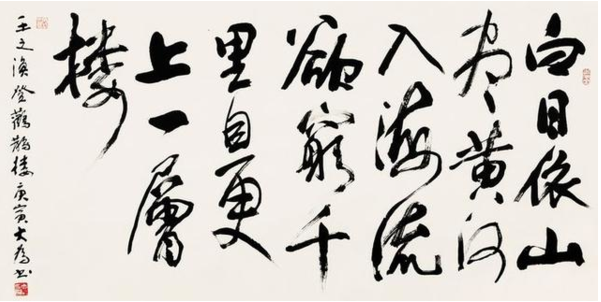 白日依山
尽黄河
入海流
欲窮千
里目更
上一層
楼
王之渙登鸛鵲楼庚寅大為书